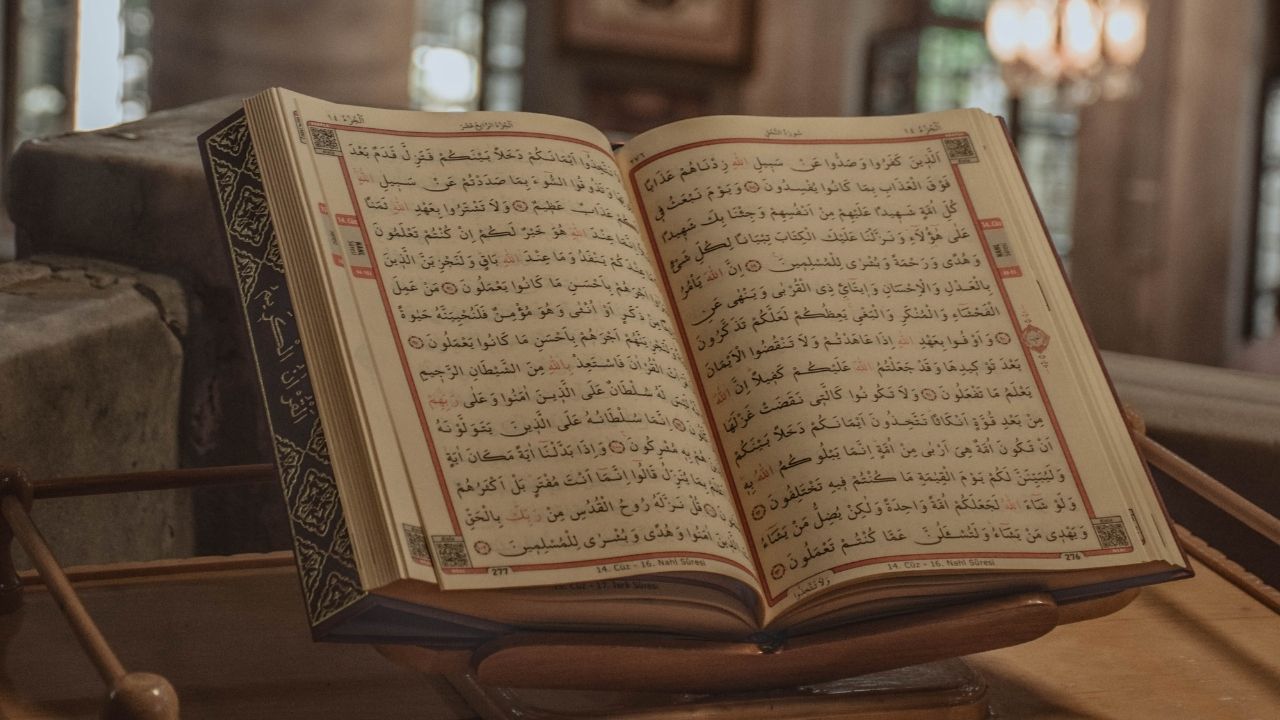 الْجُزْءُ ١٤
سُورَةُ النَّحْلِ
٢٧٦
اَلَّذِينَ كَفَرُوا وَصَدُّوا عَنْ سَبِيلِ اللّٰهِ زِدْنَاهُمْ عَذَابًا
فَوْقَ الْعَذَابِ بِمَا كَانُوا يُفْسِدُونَ وَيَوْمَ نَبْعَثُ فِي
كُلِّ اُمَّةٍ شَهِيدًا عَلَيْهِمْ مِنْ اَنْفُسِهِمْ وَجِئْنَا بِكَ شَهِيدًا
عَلٰى هٰؤُلَاءِ وَنَزَّلْنَا عَلَيْكَ الْكِتَابَ تِبْيَانًا لِكُلِّ شَيْءٍ
وَهُدًى وَرَحْمَةً وَبُشْرٰى لِلْمُسْلِمِينَ اِنَّ اللّٰهَ يَأْمُرُ
بِالْعَدْلِ وَالْاِحْسَانِ وَاِيتَائِ ذِي الْقُرْبٰى وَيَنْهٰى عَنِ
الْفَحْشَاءِ وَالْمُنْكَرِ وَالْبَغْيِ يَعِظُكُمْ لَعَلَّكُمْ تَذَكَّرُونَ
وَاَوْفُوا بِعَهْدِ اللّٰهِ اِذَا عَاهَدْتُمْ وَلَا تَنْقُضُوا الْاَيْمَانَ
بَعْدَ تَوْكِيدِهَا وَقَدْ جَعَلْتُمُ اللّٰهَ عَلَيْكُمْ كَفِيلًا اِنَّ اللّٰهَ
يَعْلَمُ مَا تَفْعَلُونَ وَلَا تَكُونُوا كَالَّتِي نَقَضَتْ غَزْلَهَا
مِنْ بَعْدِ قُوَّةٍ اَنْكَاثًا تَتَّخِذُونَ اَيْمَانَكُمْ دَخَلًا بَيْنَكُمْ
اَنْ تَكُونَ اُمَّةٌ هِيَ اَرْبٰى مِنْ اُمَّةٍ اِنَّمَا يَبْلُوكُمُ اللّٰهُ بِهِ
وَلَيُبَيِّنَنَّ لَكُمْ يَوْمَ الْقِيٰمَةِ مَا كُنْتُمْ فِيهِ تَخْتَلِفُونَ
وَلَوْ شَاءَ اللّٰهُ لَجَعَلَكُمْ اُمَّةً وَاحِدَةً وَلٰكِنْ يُضِلُّ مَنْ يَشَاءُ
وَيَهْدِي مَنْ يَشَاءُ وَلَتُسْـَٔلُنَّ عَمَّا كُنْتُمْ تَعْمَلُونَ
وَلَا تَتَّخِذُوا
14. Cüz - 16. Nahl Sûresi
276
14. Cüz
اَلْجُزْءُ الرَّابِعُ عَشَرَ
الْجُزْءُ ١٤
تَتَّخِذُوا اَيْمَانَكُمْ دَخَلًا بَيْنَكُمْ فَتَزِلَّ قَدَمٌ بَعْدَ
وَتَذُوقُوا السُّوءَ بِمَا صَدَدْتُمْ عَنْ سَبِيلِ اللّٰهِ
عَذَابٌ عَظِيمٌ وَلَا تَشْتَرُوا بِعَهْدِ اللّٰهِ ثَمَنًا
عِنْدَ اللّٰهِ هُوَ خَيْرٌ لَكُمْ اِنْ كُنْتُمْ تَعْلَمُونَ
عِنْدَكُمْ يَنْفَدُ وَمَا عِنْدَ اللّٰهِ بَاقٍ وَلَنَجْزِيَنَّ الَّذِينَ
اَجْرَهُمْ بِاَحْسَنِ مَا كَانُوا يَعْمَلُونَ مَنْ عَمِلَ
مِنْ ذَكَرٍ اَوْ اُنْثٰى وَهُوَ مُؤْمِنٌ فَلَنُحْيِيَنَّهُ حَيٰوةً
اَجْرَهُمْ بِاَحْسَنِ مَا كَانُوا يَعْمَلُونَ
الْقُرْاٰنَ فَاسْتَعِذْ بِاللّٰهِ مِنَ الشَّيْطَانِ الرَّجِيمِ
لَهُ سُلْطَانٌ عَلَى الَّذِينَ اٰمَنُوا وَعَلٰى رَبِّهِمْ
اِنَّمَا سُلْطَانُهُ عَلَى الَّذِينَ يَتَوَلَّوْنَهُ
هُمْ بِهِ مُشْرِكُونَ وَاِذَا بَدَّلْنَا اٰيَةً مَكَانَ اٰيَةٍ
بِمَا يُنَزِّلُ قَالُوا اِنَّمَا اَنْتَ مُفْتَرٍ بَلْ اَكْثَرُهُمْ
قُلْ نَزَّلَهُ رُوحُ الْقُدُسِ مِنْ رَبِّكَ بِالْحَقِّ
الَّذِينَ اٰمَنُوا وَهُدًى وَبُشْرٰى لِلْمُسْلِمِينَ
277
14. Cüz - 16. Nahl Sûresi
14. Cüz